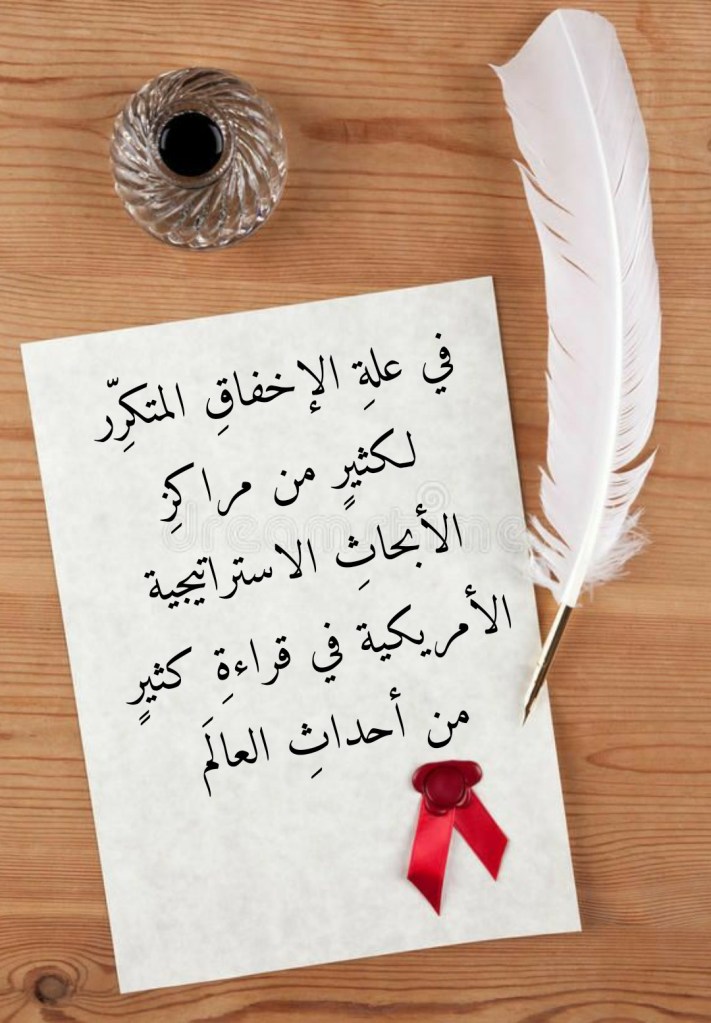 في علةِ الإخفاقِ المتكرِّر
لكثيرٍ من مراكزِ
الأبحاثِ الاستراتيجية
الأمريكية في قراءةِ كثيرٍ
من أحداثِ العالَم
dreamstime